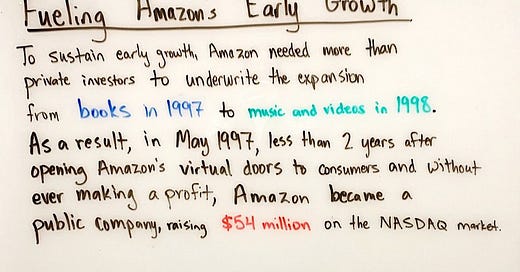 Fueling Amazons Early Growth
To sustain early growth, Amazon needed more than
private investors to underwrite the expansion
from books in 1997 to music and videos in 1998.
As a result, in May 1997, less than 2 years after
opening Amazon's virtual doors to consumers and without
ever making a profit, Amazon became a
public company, raising $54 million on the NASDAQ market.